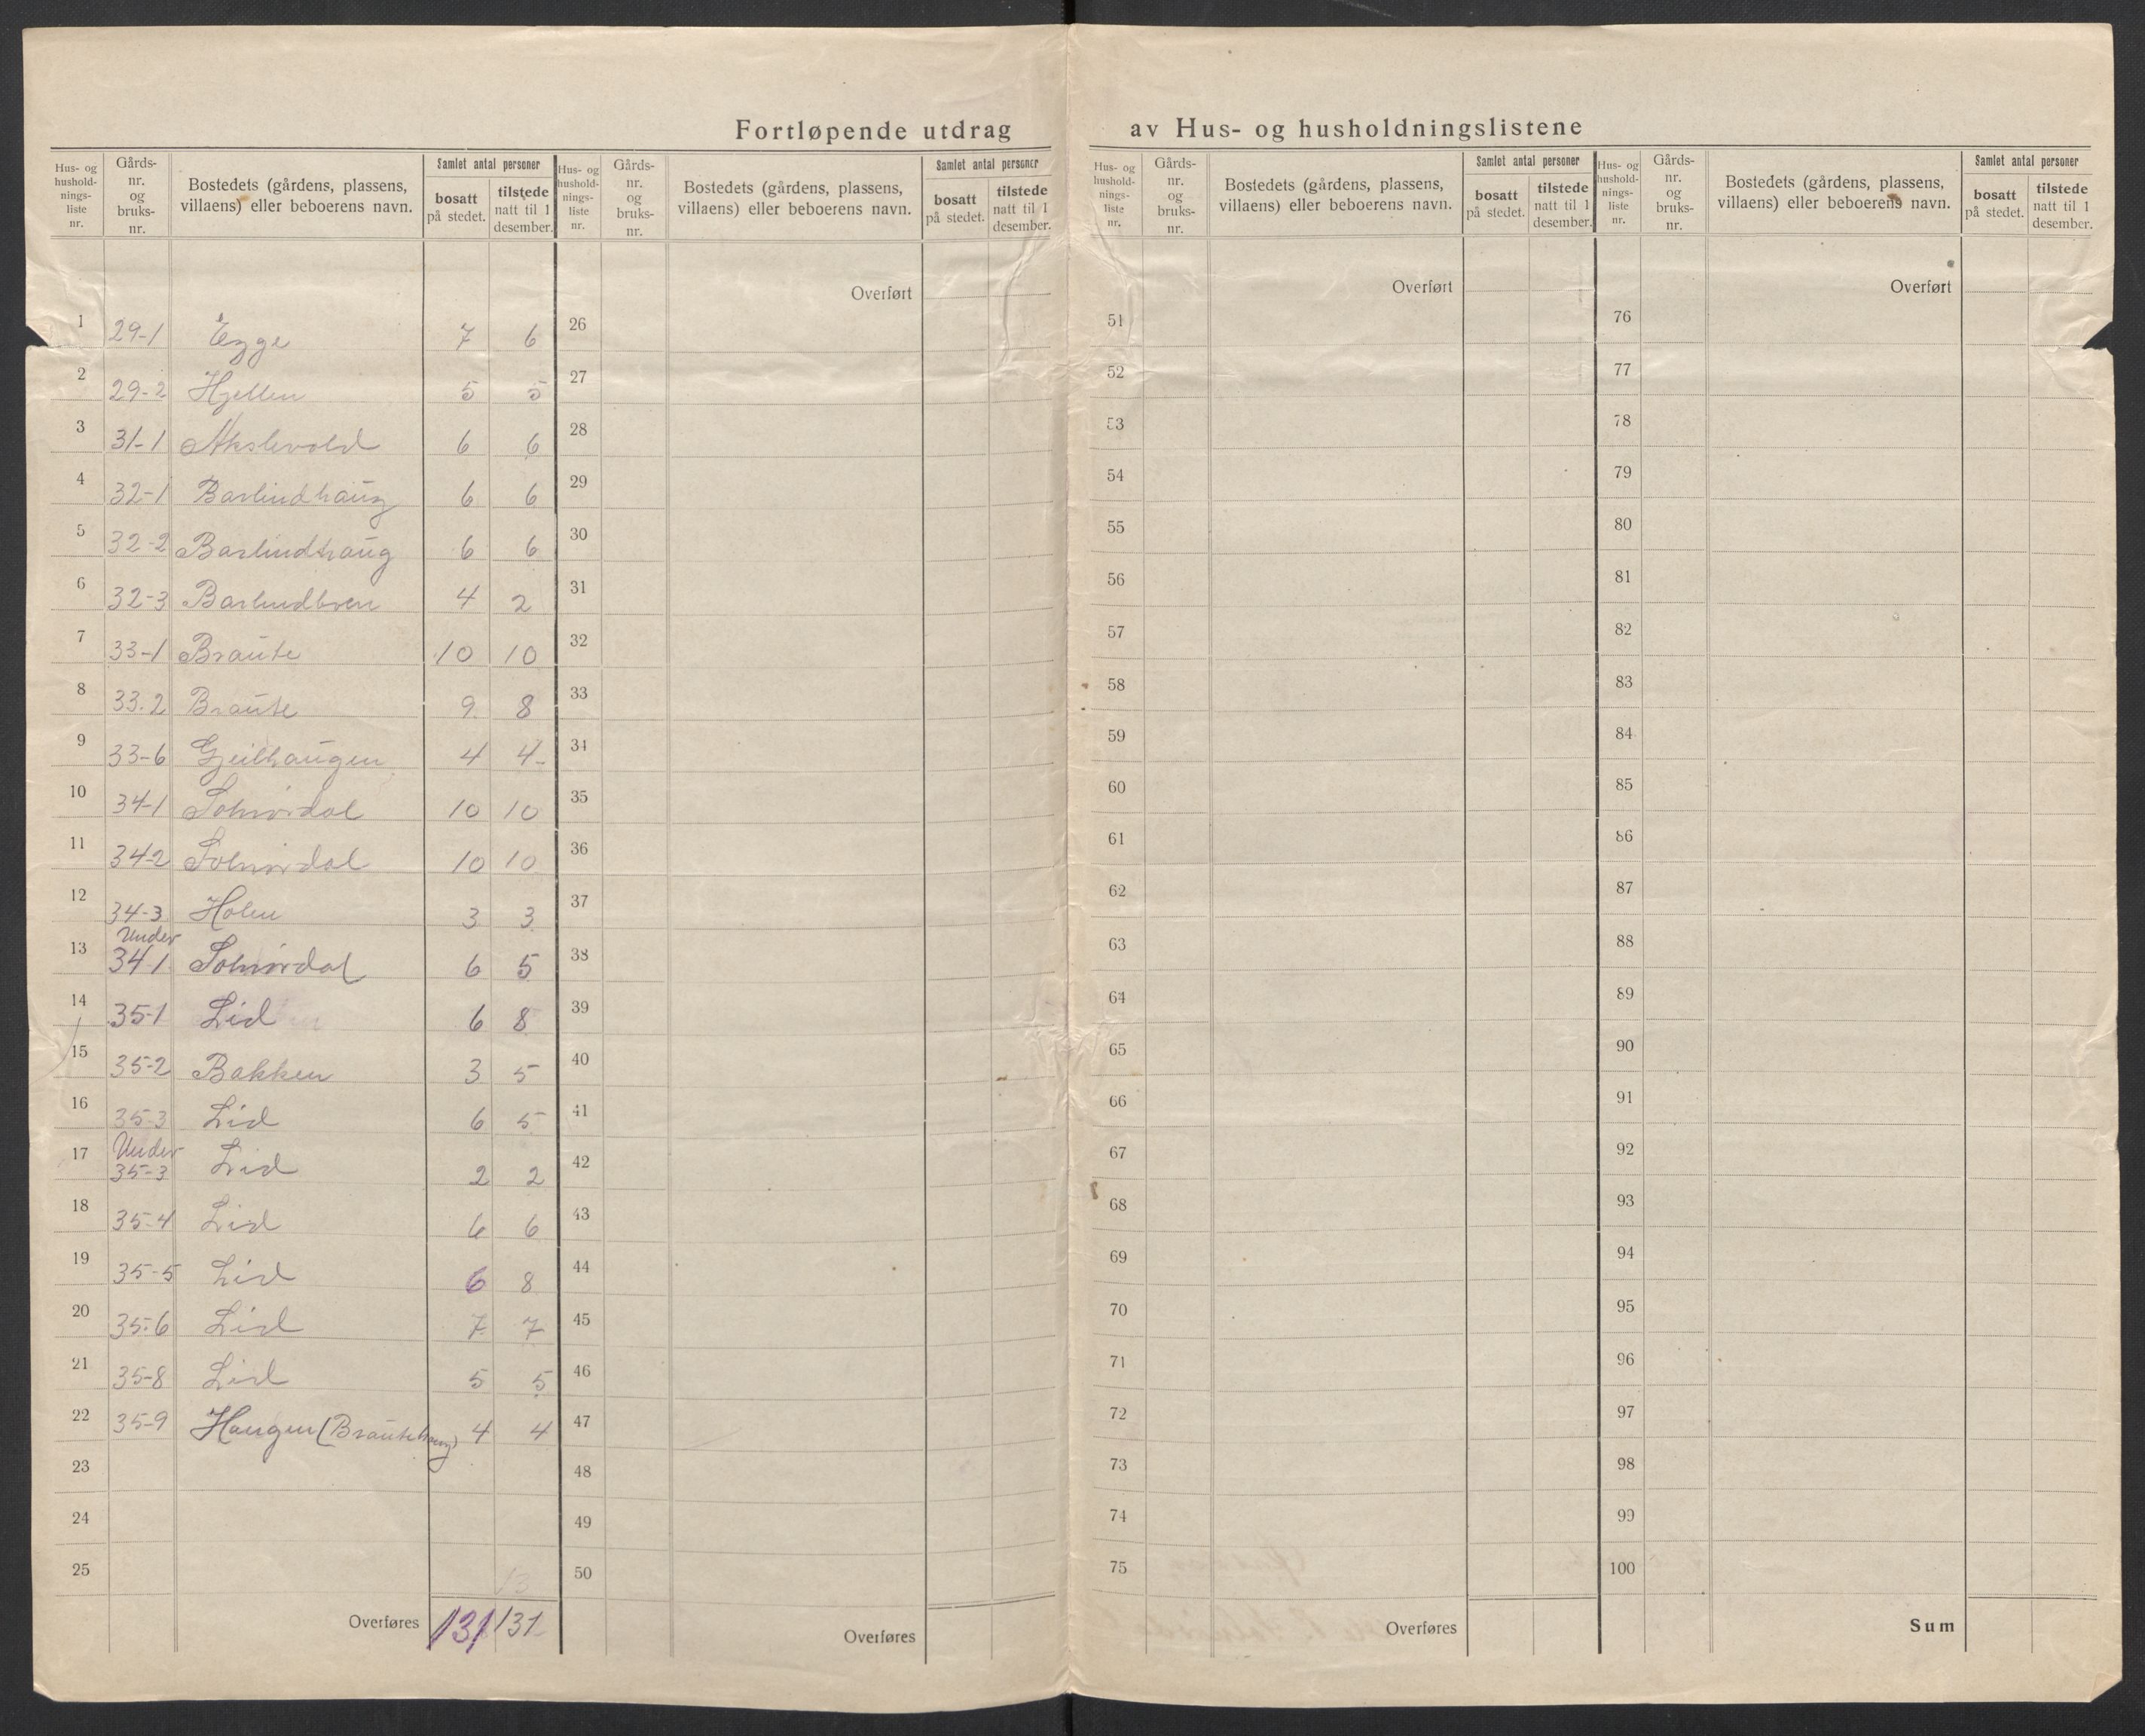 Fortløpende utdrag av Hus- og husholdningslistene
Hus- og hushold-nings-liste nr. | Gårds-nr. og bruks-nr. | Bostedets (gårdens, plassens, villaens) eller beboerens navn. | Samlet antal personer | bosatt på stedet. | tilstede natt til 1 desember.
Hus- og hushold-nings-liste nr. | Gårds-nr. og bruks-nr. | Bostedets (gårdens, plassens, villaens) eller beboerens navn. | Samlet antal personer | bosatt på stedet. | tilstede natt til 1 desember.
Hus- og hushold-nings-liste nr. | Gårds-nr. og bruks-nr. | Bostedets (gårdens, plassens, villaens) eller beboerens navn. | Samlet antal personer | bosatt på stedet. | tilstede natt til 1 desember.
Hus- og hushold-nings-liste nr. | Gårds-nr. og bruks-nr. | Bostedets (gårdens, plassens, villaens) eller beboerens navn. | Samlet antal personer | bosatt på stedet. | tilstede natt til 1 desember.
Overført Overført Overført
1 29-1 Egge 7 6 26 51 76
2 29-2 Hjellen 5 5 27 52 77
3 31-1 Akslevold 6 6 28 53 78
4 32-1 Barlindhaug 6 6 29 54 79
5 32-2 Barlindhaug 6 6 30 55 80
6 32-3 4 2 31 56 81
7 33-1 Braute 10 10 32 57 82
8 33.2 Braute 9 8 33 58 83
9 33-6 Geilhaugen 4 4 34 59 84
10 34-1 Solnørdal 10 10 35 60 85
11 34-2 Solnørdal 10 10 36 61 86
12 34-3 Holen 3 3 37 62 87
13 Under 34-1 Solnørdal 6 5 38 63 88
14 35-1 Lid 6 8 39 64 89
15 35-2 Bakken 3 5 40 65 90
16 35-3 Lid 6 5 41 66 91
17 Under 35-3 Lid 2 2 42 67 92
18 35-4 Lid 6 6 43 68 93
19 35-5 Lid 6 8 44 69 94
20 35-6 Lid 7 7 45 70 95
21 35-8 Lid 5 5 46 71 96
22 35-9 Haugen (Brautehaug) 4 4 47 72 97
23 48 73 98
24 49 74 99
25 50 75 100
Overføres 131 131 Overføres Overføres Sum